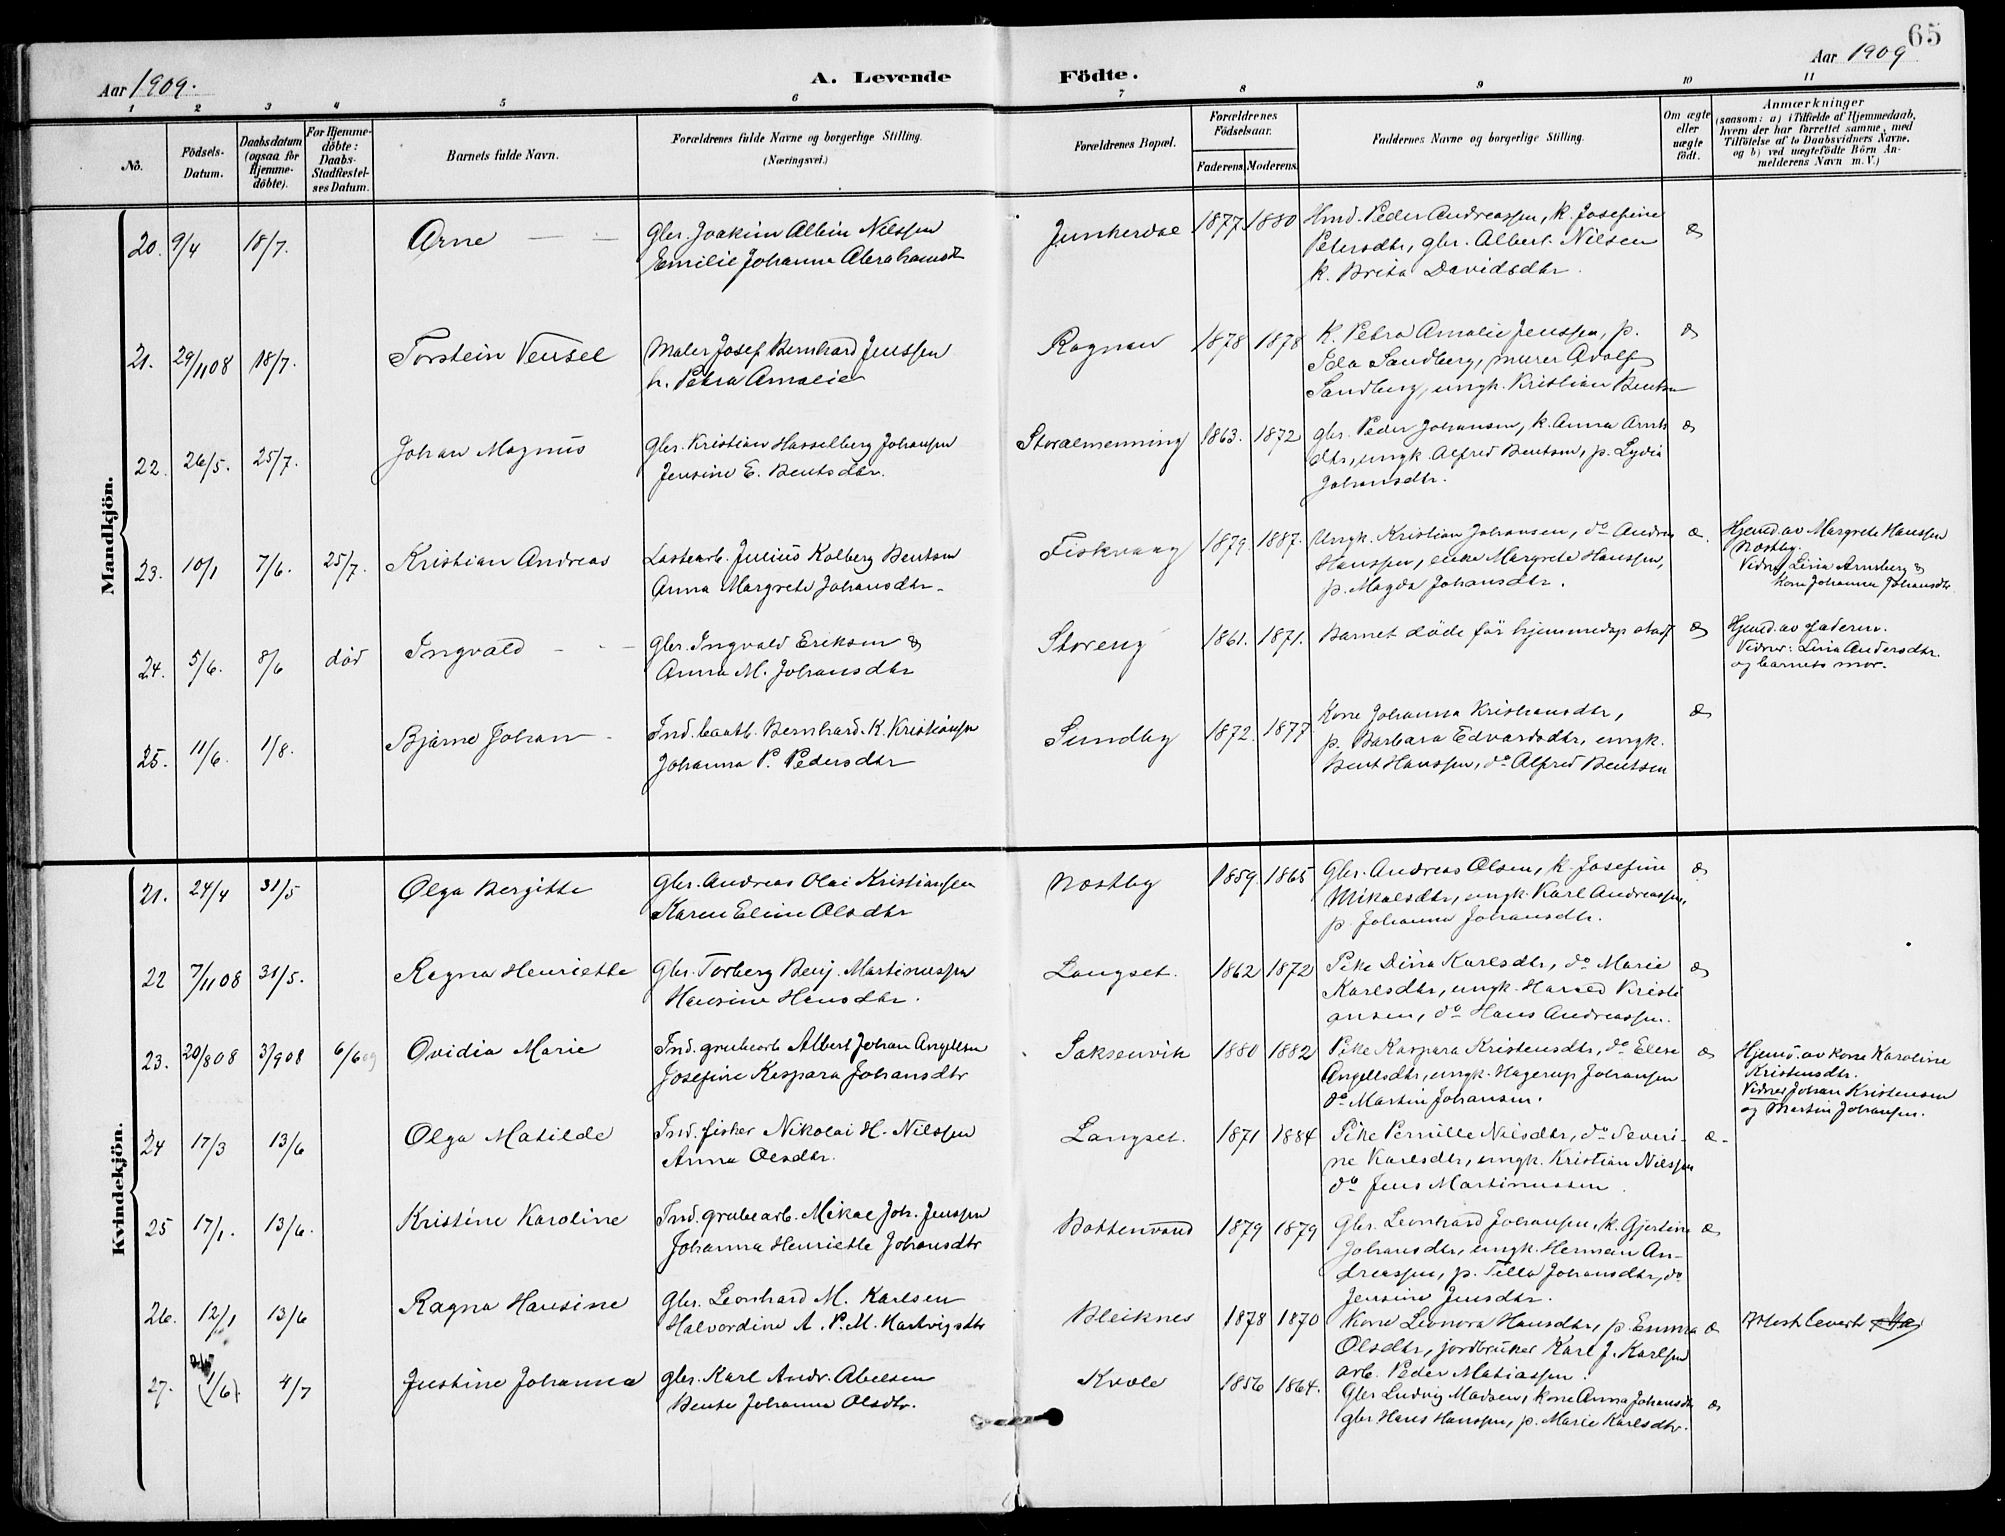 65
Aar 1909.
A. Levende Födte.
Aar 1909
1 2 3 4 5 6 7 8 9 10 11
No.
Födsels-Datum.
Daabsdatum (ogsaa for Hjemmedöbte).
For Hjemmedöbte: Daabs-Stadfæstelses Datum.
Barnets fulde Navn.
Forældrenes fulde Navne og borgerlige Stilling. (Næringsvei.)
Forældrenes Bopæl.
Forældrenes Födselsaar.
Faderens. Moderens.
Faddernes Navne og borgerlige Stilling.
Om ægte eller uægte födt.
Anmærkninger
(saasom: a) i Tilfælde af Hjemmedaab,
hvem der har forrettet samme, med
Tilföielse af to Daabsvidners Navne,
og b) ved uægtefödte Börn An-
melderens Navn m. V.)
Mandkjön.
20. 9/4 18/7. Arne
Gbr. Joakim Albin Nilssen
Emilie Johanna Abrahamsdt
Junkerdal 1877 1880
Hmd. Peder Andreassen, k. Josefine
Petersdtr, gbr. Albert Nilsen
k. Brita Davidsdtr.
æ
21. 29/11 08 18/7. Torstein Vensel
Maler Josef Bernhard Jenssen
h. Petra Amalie
Rognan 1878 1878
K. Petra Amalie Jenssen, p.
Ida Sandberg, murer Adolf
Sandberg, ungk. Kristian Bentsen
æ
22. 26/5. 25/7. Johan Magnus
Gbr. Kristian Hasselberg Johansen
Jensine E. Bentsdtr.
Storalmenning 1863. 1872
gbr. Peder Johansen, k. Anna Arnts
dtr, ungk. Alfred Bentsen, p. Lydia
Johansdtr.
æ
23. 10/1 7/6. 25/7. Kristian Andreas
Lastearb. Julius Kolberg Bentsen
Anna Margrete Johansdtr.
Fiskvaag 1879. 1887.
Ungk. Kristian Johansen, do Andreas
Hanssen, enke Margrete Hanssen,
p. Magda Johansdtr.
æ.
Hjemd. av Margrete Hanssen
Nostby.
Vidner Lina Arnsberg &
Kone Johanna Johansdtr.
24. 5/6. 8/6 död Ingvald
Gbr. Ingvald Eriksen &
Anna M. Johansdtr
Storeng 1861. 1871.
Barnet döde för hjemmedaap stadf
æ
Hjemd. av faderen.
Vidner: Lina Andersdtr.
og barnets mor.
25. 11/6. 1/8. Bjarne Johan
Ind. baatb. Bernhard K. Kristiansen
Johanna P. Pedersdtr
Sundby 1872. 1877
Kone Johanna Kristiansdtr,
p. Barbara Edvardsdtr, ungk.
Bent Hanssen, do Alfred Bentsen
æ
Kvindekjön.
21. 24/4 31/5 Olga Bergitte
Gbr. Andreas Olai Kristiansen
Karen Eline Olsdtr
Nostby 1859. 1865
Gbr. Andreas Olsen, k. Josefine
Mikalsdtr, ungk. Karl Andreassen,
p. Johanna Johansdtr.
æ
22 7/11 08 31/5. Ragna Henriette
Gbr. Torberg Benj. Martinussen
Hansine Hansdtr.
Langset. 1862 1872
Pike Dina Karlsdtr, do Marie
Karlsdtr, ungk. Harald Kristi
ansen, do Hans Andreassen.
æ
23. 20/8 08 3/9 08 6/6 09 Ovidia Marie
Ind. grubearb Albert Johan Angelsen
Josefine Kaspara Johansdtr
Saksenvik 1880 1882
Pike Kaspara Kristensdtr, do Elise
Angelsdtr, ungk. Hagerup Johansen
do Martin Johansen.
æ
Hjemd. av kone Karoline
Kristensdtr.
Vidner Johan Kristensen
og Martin Johansen.
24 17/3 13/6 Olga Matilde
Ind. fisker Nikolai H. Nilssen
Anna Olsdtr.
Langset. 1871 1884
Pike Pernille Nilsdtr, do Severi-
ne Karlsdtr, ungk. Kristian Nilssen
do Jens Martinussen.
æ
25 17/1. 13/6. Kristine Karoline
Ind. grubearb. Mikal Joh. Jenssen
Johanna Henriette Johansdtr
Bottenvand 1879 1879
Gbr. Leonhard Johansen, k. Gjertine
Johansdtr, ungk. Herman An-
dreassen, p. Tilla Johansdtr, do
Jensine Jensdtr.
æ
26. 12/1 13/6 Ragna Hansine
Gbr. Leonhard M. Karlsen
Halvardine A. P. M. Hartvigsdtr
Bleiknes 1878 1870
Kone Leonora Hansdtr, p. Emma
Olsdtr, jordbruker Karl J. Karlsen
arb. Peder Matiassen.
æ
Attest levert
27. (1/6). 4/7 Justine Johanna
gbr. Karl Andr. Abelsen
Bense Johanna Olsdtr.
Kvæle 1856 1864.
Gbr Ludvig Madsen, kone Anna Johansdtr
gbr Hans Hanssen, p. Marie Karlsdtr.
æ